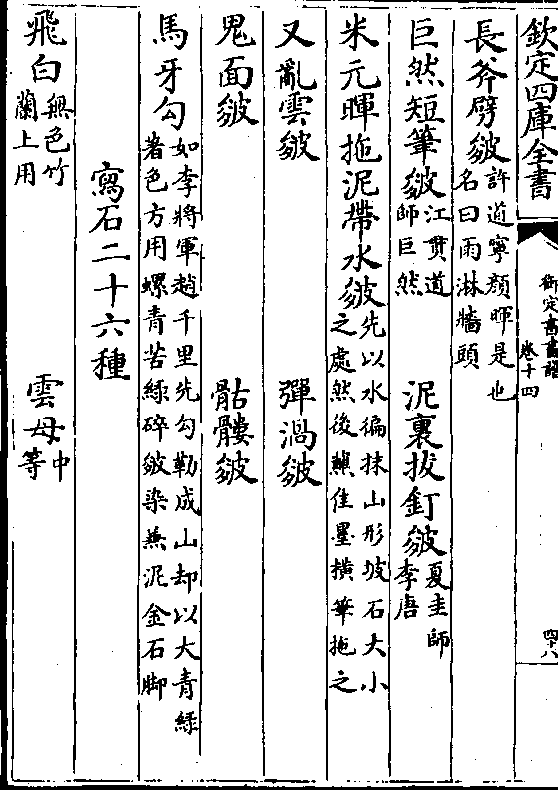 欽定四庫全書
御定書畫譜
卷十四
四十八
長斧劈皴許道寧顏暉是也
名曰雨淋牆頭
巨然短筆皴江貫道
師巨然
泥裏拔釘皴夏圭師
李唐
米元暉拖泥帶水皴先以水徧抹山形坡石大小
之處然後蘸佳墨橫筆拖之
又亂雲皴
彈渦皴
鬼面皴
骷髏皴
馬牙勾如李將軍趙千里先勾勒成山却以大青綠
著色方用螺青苦綠碎皴染兼泥金石脚
寫石二十六種
飛白無色竹
蘭上用
雲母中
等